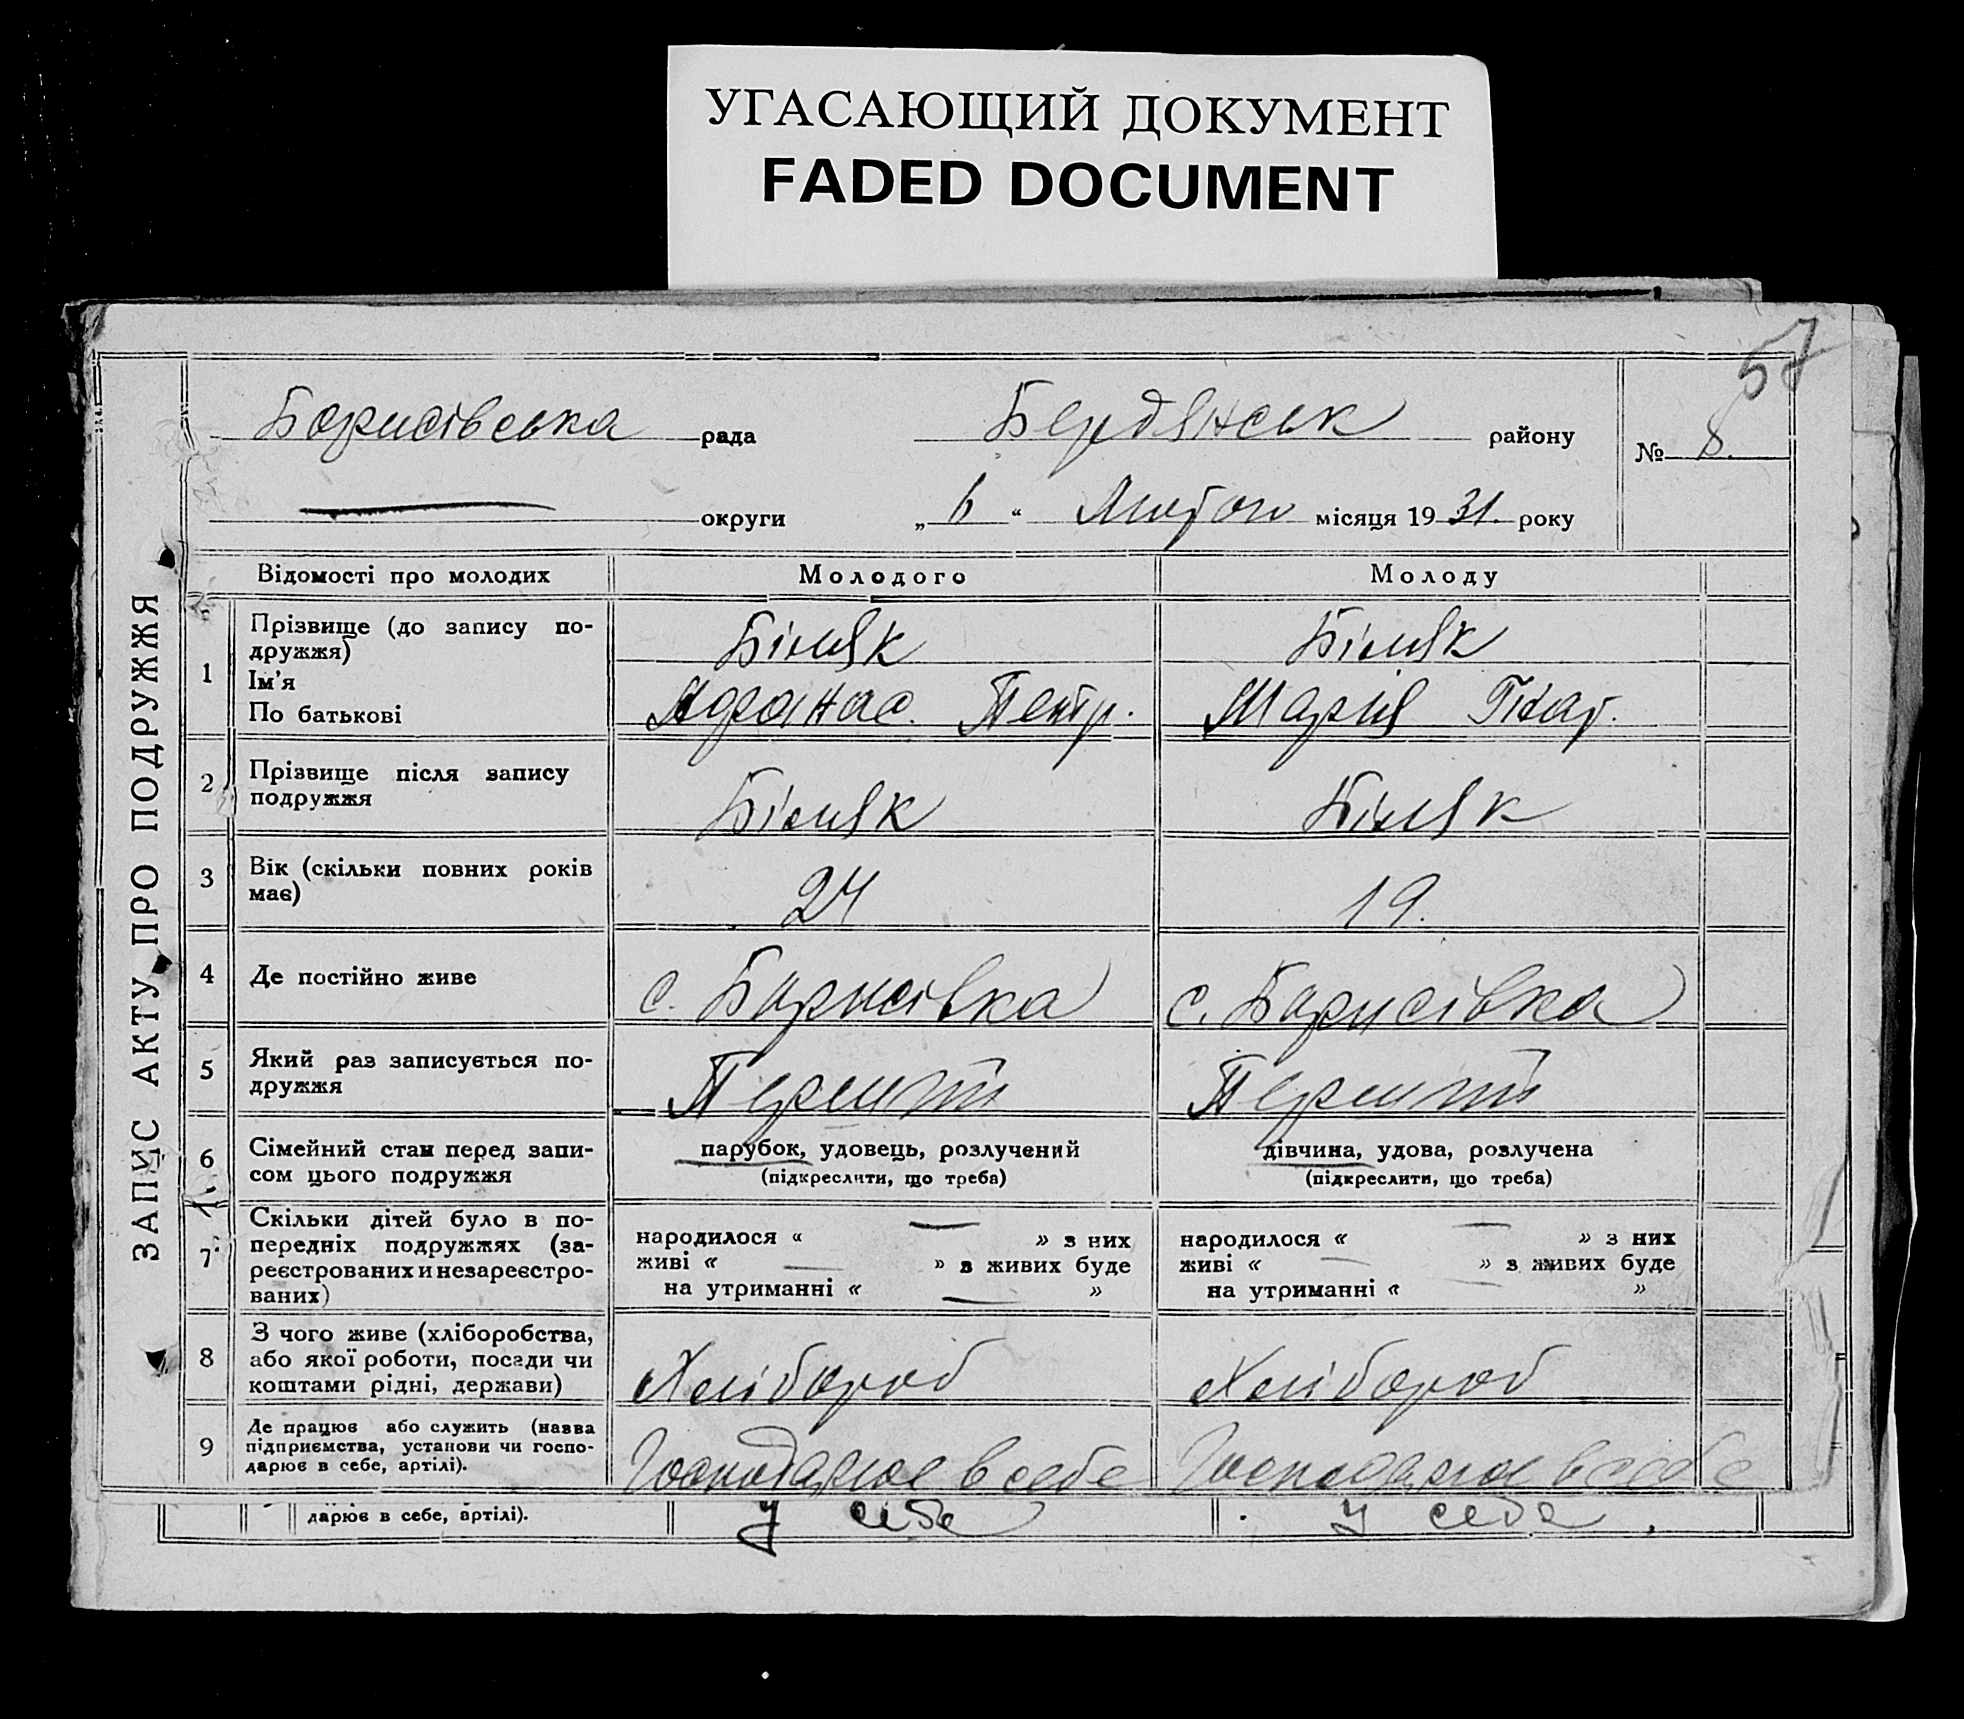 УГАСАЮЩИЙ ДОКУМЕНТ
FADED DOCUMENT
57
ЗАПИС АКТУ ПРО ПОДРУЖЖЯ
Борисівська рада Бердянськ району № 8.
округи „ 6 “ Лютого місяця 19 31. року
Відомості про молодих Молодого Молоду
1 Прізвище (до запису по-
дружжя) Біляк Біляк
Ім'я
По батькові Афанас. Петр. Марія Гнат.
2 Прізвище після запису
подружжя Біляк Біляк
3 Вік (скільки повних років
має) 24 19.
4 Де постійно живе с. Борисівка с. Борисівка
5 Який раз записується по-
дружжя
6 Сімейний стан перед запи-
сом цього подружжя
парубок, удовець, розлучений дівчина, удова, розлучена
(підкреслити, що треба) (підкреслити, що треба)
7 Скільки дітей було в по-
передніх подружжях (за-
реєстрованих и незареєстро-
ваних)
народилося « — » з них народилося « — » з них
живі « — » з живих буде живі « — » з живих буде
на утриманні « — » на утриманні « — »
8 З чого живе (хліборобства,
або якої роботи, посади чи
коштами рідні, держави) Хлібороб Хлібороб
9 Де працює або служить (назва
підприємства, установи чи госпо-
дарює в себе, артілі). Господарює в себе Господарює в себе
дарює в себе, артілі). у себе у себе.